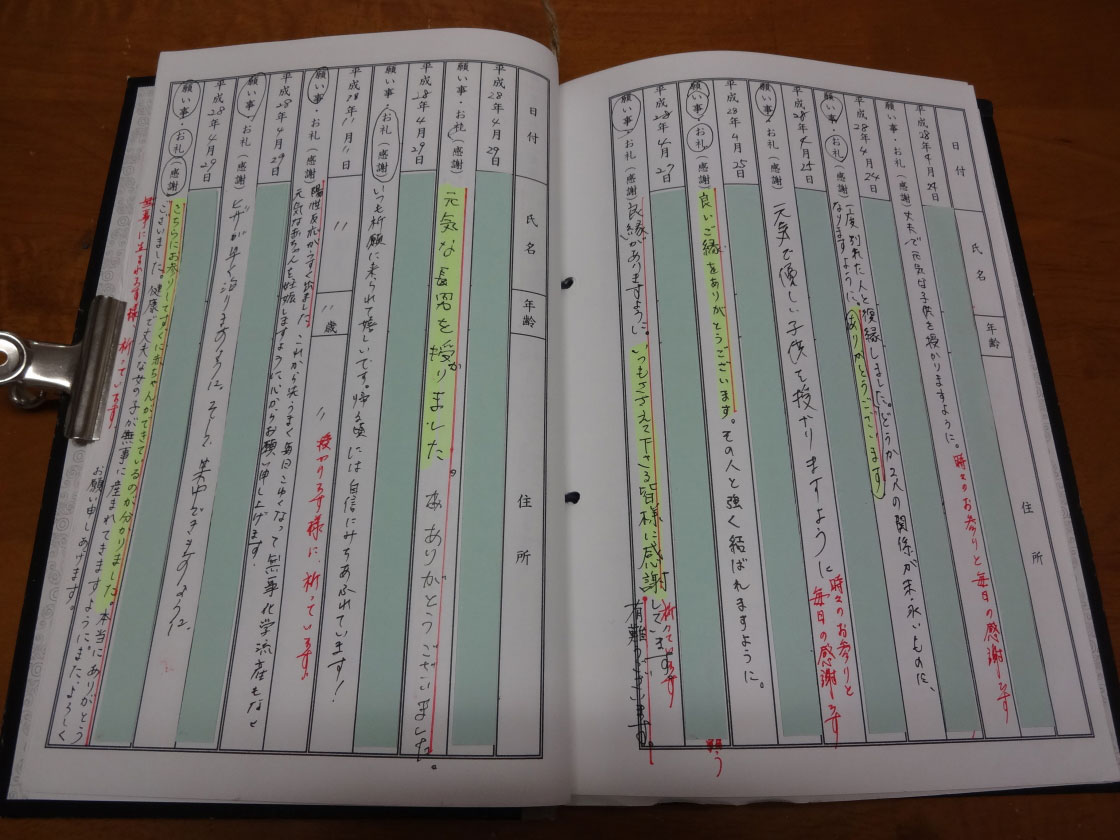 日付 氏名 年齢 住所
平成28年4月24日
願い事・お礼(感謝) 丈夫で元気な子供を授かりますように。 時々のお参りと毎日の感謝です
平成28年4月24日
願い事・お礼(感謝) 一度別れた人と復縁しました。どうか2人の関係が末永いものに、
なりますように。ありがとうございます
平成28年4月25日
願い事・お礼(感謝) 元気で優しい子供を授かりますように
時々のお参りと
毎日の感謝です
平成28年4月25日
願い事・お礼(感謝) 良いご縁をありがとうございます。その人と強く結ばれますように。
平成28年4月27日
願い事・お礼(感謝) 良縁がありますように。いつもささえて下さる皆様に感謝しています
祈っています
有難うございます。
日付 氏名 年齢 住所
平成28年4月29日
願い事・お礼(感謝) 元気な長男を授かりました。 ありがとうございました。
平成28年4月29日
願い事・お礼(感謝) いつも祈願に来られて嬉しいです。帰る頃には自信にみちあふれています!
平成28年11月11日 〃 〃歳 〃
願い事・お礼(感謝) 陽性反応がうすく出ました。これから
元気な赤ちゃんを妊娠しますように心からお願い申し上げます。
授かります様に 祈っています。
平成28年4月29日
願い事・お礼(感謝) ヒザが早く治りますように。そして、集中できますように。
平成28年4月29日
願い事・お礼(感謝) こちらにお参りしてすぐに赤ちゃんができているのが分かりました。本当にありがとう
ございました。健康で丈夫な女の子が無事に産まれてきますように、また、よろしく
お願い申しあげます。
無事に生まれます様、祈っています